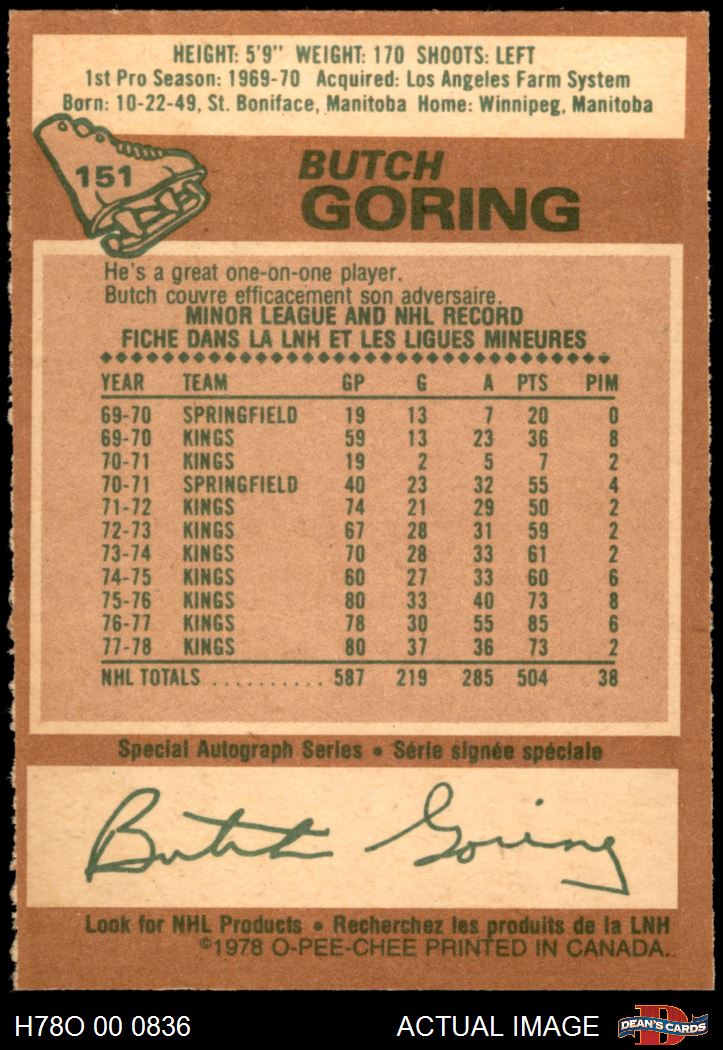 HEIGHT: 5'9" WEIGHT: 170 SHOOTS: LEFT
1st Pro Season: 1969-70 Acquired: Los Angeles Farm System
Born: 10-22-49, St. Boniface, Manitoba Home: Winnipeg, Manitoba
151
BUTCH
GORING
He's a great one-on-one player.
Butch couvre efficacement son adversaire.
MINOR LEAGUE AND NHL RECORD
FICHE DANS LA LNH ET LES LIGUES MINEURES
YEAR TEAM GP G A PTS PIM
69-70 SPRINGFIELD 19 13 7 20 0
69-70 KINGS 59 13 23 36 8
70-71 KINGS 19 2 5 7 2
70-71 SPRINGFIELD 40 23 32 55 4
71-72 KINGS 74 21 29 50 2
72-73 KINGS 67 28 31 59 2
73-74 KINGS 70 28 33 61 2
74-75 KINGS 60 27 33 60 6
75-76 KINGS 80 33 40 73 8
76-77 KINGS 78 30 55 85 6
77-78 KINGS 80 37 36 73 2
NHL TOTALS .......... 587 219 285 504 38
Special Autograph Series • Série signée spéciale
Butch Goring
Look for NHL Products • Recherchez les produits de la LNH
©1978 O-PEE-CHEE PRINTED IN CANADA.
H78O 00 0836 ACTUAL IMAGE D DEAN'S CARDS